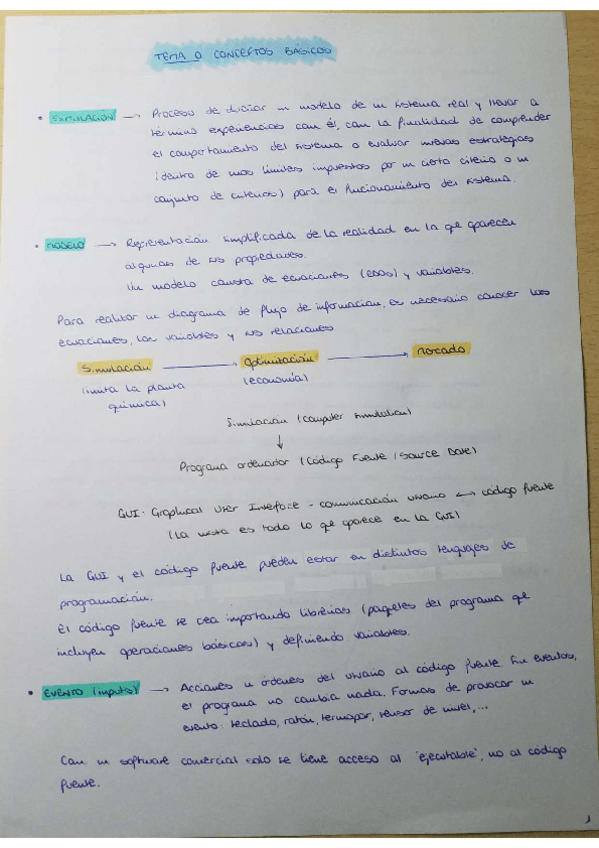 TEMA 0 CONCEPTOS BÁSICOS
• SIMULACIÓN → Proceso de diseñar un modelo de un sistema real y llevar a
término experiencias con él, con la finalidad de comprender
el comportamiento del sistema o evaluar nuevas estrategias
(dentro de unos límites impuestos por un cierto criterio o un
conjunto de criterios) para el funcionamiento del sistema.
• MODELO → Representación simplificada de la realidad en la que aparecen
algunas de sus propiedades.
Un modelo consta de ecuaciones (EDOs) y variables.
Para realizar un diagrama de flujo de información, es necesario conocer las
ecuaciones, las variables y sus relaciones
Simulación → Optimización → Mercado
(imita la planta (economía)
química)
Simulación (Computer simulation)
↓
Programa ordenador (Código Fuente / Source Code)
GUI: Graphical User Interface - comunicación usuario ↔ código fuente
(La vista es todo lo que aparece en la GUI)
La GUI y el código fuente pueden estar en distintos lenguajes de
programación.
El código fuente se crea importando librerías (paquetes del programa que
incluyen operaciones básicas) y definiendo variables.
• EVENTO (inputs) → Acciones u órdenes del usuario al código fuente. Sin eventos,
el programa no cambia nada. Formas de provocar un
evento: teclado, ratón, termopar, sensor de nivel,...
Con un software comercial solo se tiene acceso al "ejecutable", no al código
fuente.
1